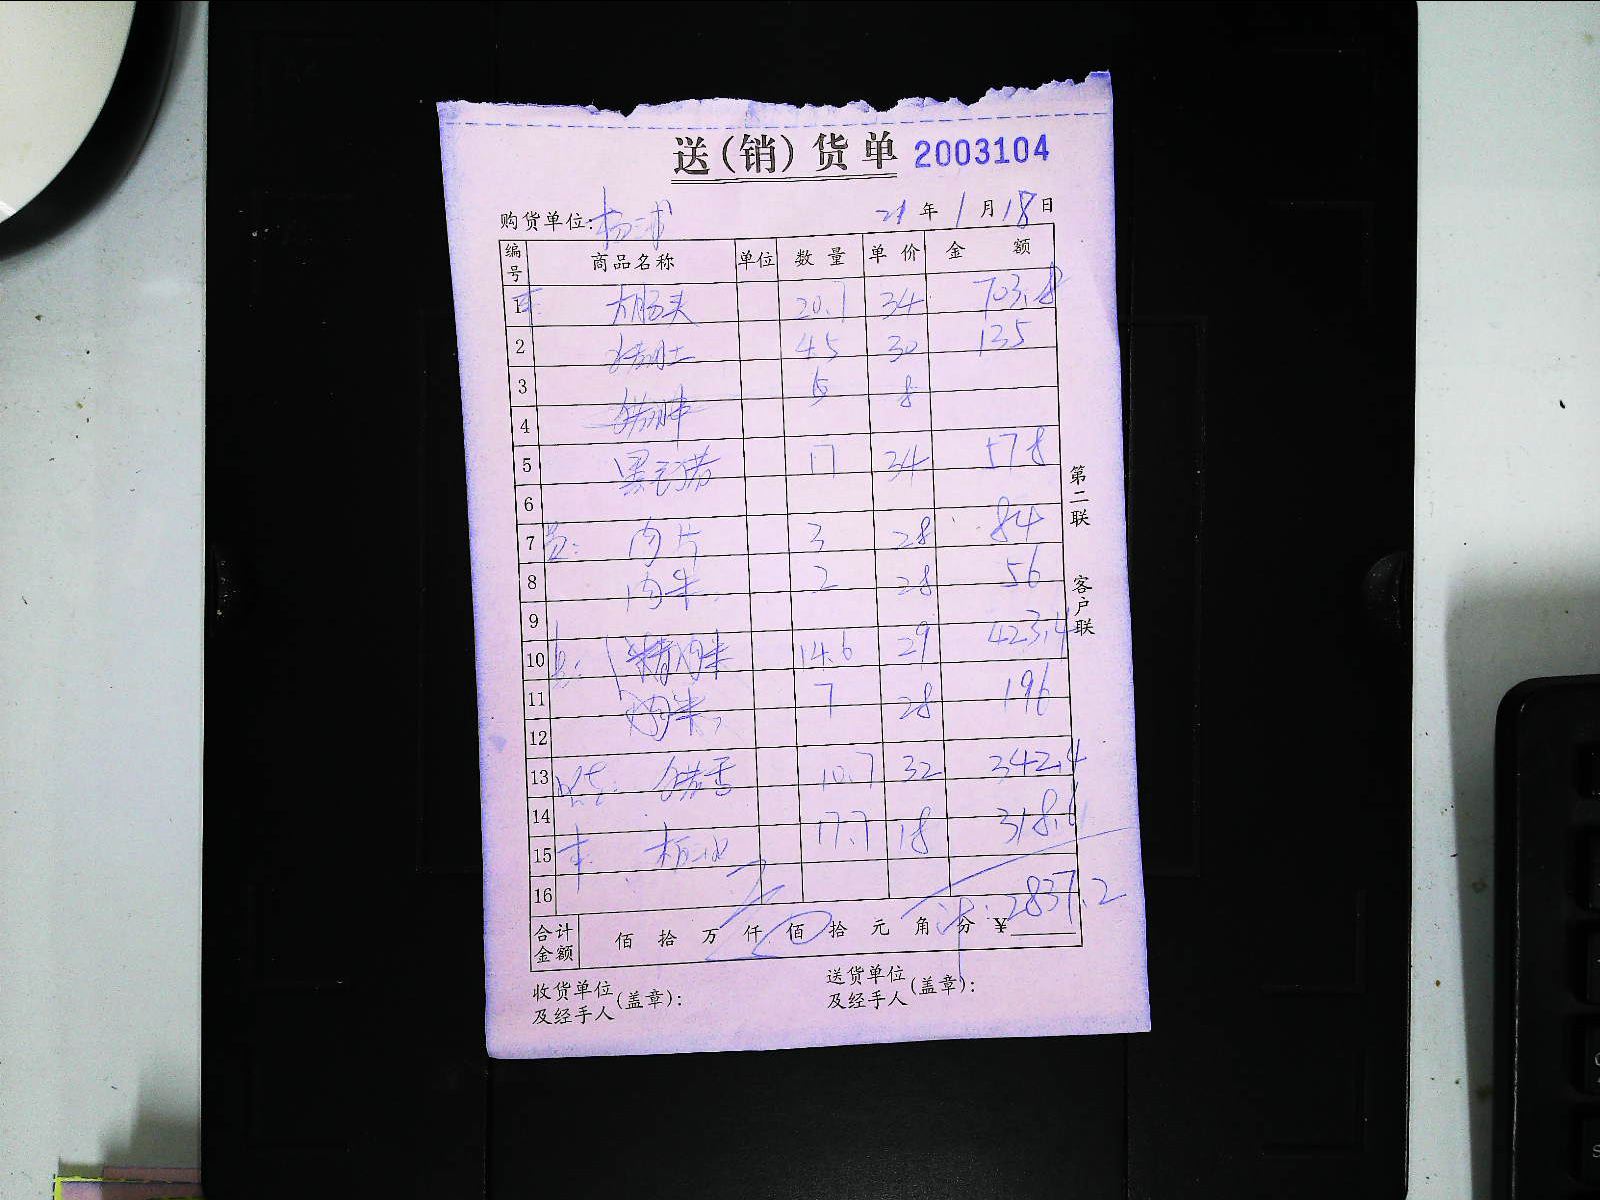 送(销)货单 2003104
购货单位: 杨浦 21年1月18日
编号 商品名称 单位 数量 单价 金额
1 大肠头 20.7 34 703.8
2 猪肚 4.5 30 135
3 5 8
4
5 黑毛猪 17 34 578
6
7 肉片 3 28 84
8 肉米 2 28 56
9
10 精肉米 14.6 29 423.4
11 肉米 7 28 196
12
13 10.7 32 342.4
14
15 17.7 18 318.6
16
合计金额 佰 拾 万 仟 佰 拾 元 角 分 ¥2837.2
收货单位及经手人(盖章):
送货单位及经手人(盖章):
第二联 客户联